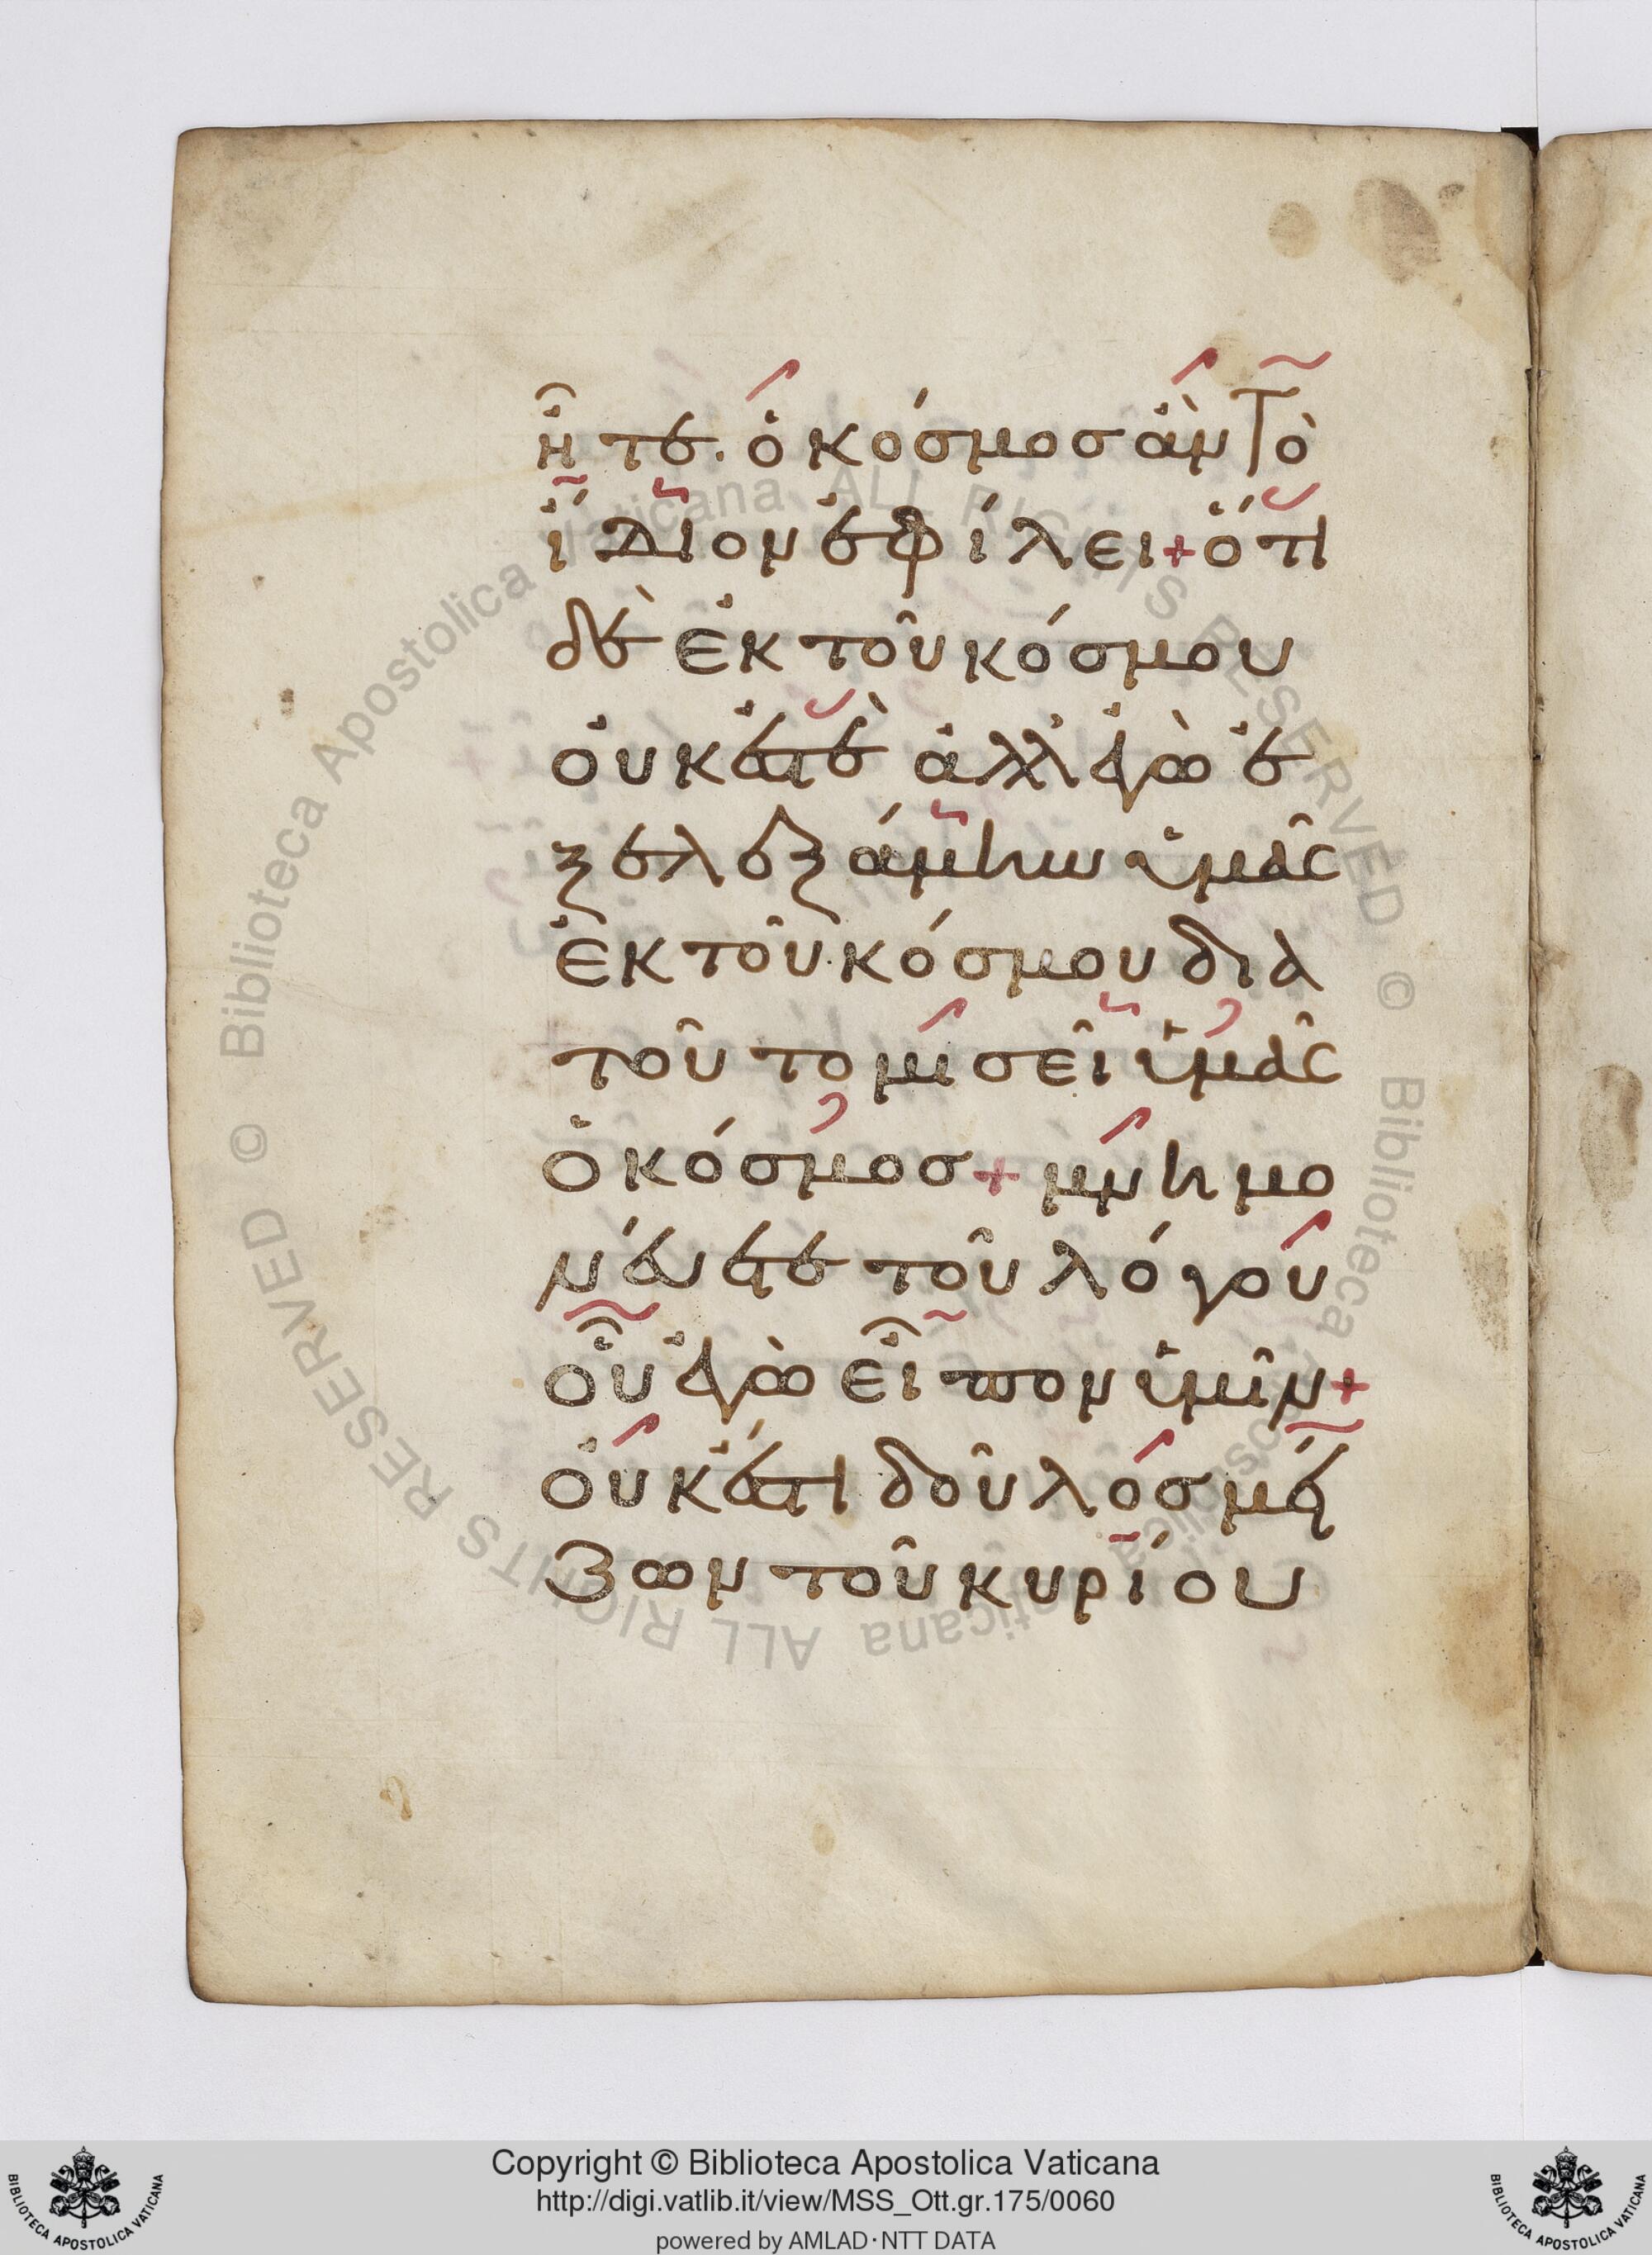 ἦτε. ὁ κόσμος ἂν τὸ
ἴδιον ἐφίλει + ὅτι
δὲ ἐκ τοῦ κόσμου
οὐκ ἐστὲ ἀλλ' ἐγὼ ἐ
ξελεξάμην ὑμᾶς
ἐκ τοῦ κόσμου διὰ
τοῦτο μισεῖ ὑμᾶς
ὁ κόσμος + μνημο
νεύετε τοῦ λόγου
οὗ ἐγὼ εἶπον ὑμῖν +
οὐκ ἔστι δοῦλος μεί
ζων τοῦ κυρίου
Copyright © Biblioteca Apostolica Vaticana
http://digi.vatlib.it/view/MSS_Ott.gr.175/0060
powered by AMLAD·NTT DATA
BIBLIOTECA APOSTOLICA VATICANA
BIBLIOTECA APOSTOLICA VATICANA
© Biblioteca Apostolica Vaticana ALL RIGHTS RESERVED © Biblioteca Apostolica Vaticana ALL RIGHTS RESERVED